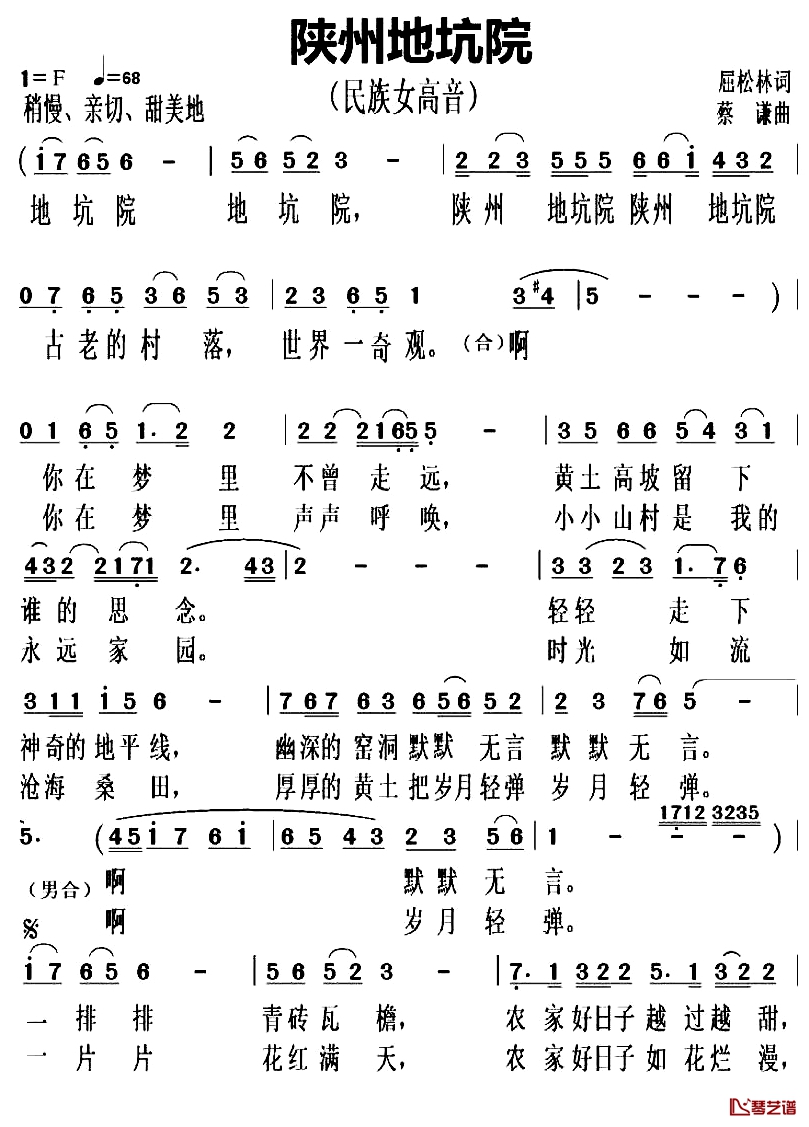 陕州地坑院
1=F ♩=68
（民族女高音）
屈松林词
稍慢、亲切、甜美地
蔡 谦曲
( i 7 6 5 6 - | 5 6 5 2 3 - | 2 2 3 5 5 5 6 6 i 4 3 2
地 坑 院 地 坑 院， 陕 州 地坑院 陕州 地坑院
0 7 6 5 3 6 5 3 | 2 3 6 5 1 3 #4 | 5 - - - )
古 老 的 村 落， 世 界 一 奇 观。（合）啊
0 1 6 5 1. 2 2 | 2 2 2 1 6 5 5 - | 3 5 6 6 5 4 3 1
你 在 梦 里 不 曾 走 远， 黄 土 高 坡 留 下
你 在 梦 里 声 声 呼 唤， 小 小 山 村 是 我 的
4 3 2 2 1 7 1 2. 4 3 | 2 - - - | 3 3 2 3 1. 7 6
谁 的 思 念。 轻 轻 走 下
永 远 家 园。 时 光 如 流
3 1 1 i 5 6 - | 7 6 7 6 3 6 5 6 5 2 | 2 3 7 6 5 -
神奇的 地平线， 幽深的 窑洞 默默 无言 默 默 无 言。
沧海 桑 田， 厚厚的 黄土 把岁月轻弹 岁 月 轻 弹。
1 7 1 2 3 2 3 5
5. ( 4 5 i 7 6 i | 6 5 4 3 2 3 5 6 | 1 - - )
（男合） 啊 默 默 无 言。
𝄋 啊 岁 月 轻 弹。
i 7 6 5 6 - | 5 6 5 2 3 - | 7. 1 3 2 2 5. 1 3 2 2
一 排 排 青 砖 瓦 檐， 农 家 好日子 越 过 越 甜，
一 片 片 花 红 满 天， 农 家 好日子 如 花 烂 漫，
琴艺谱